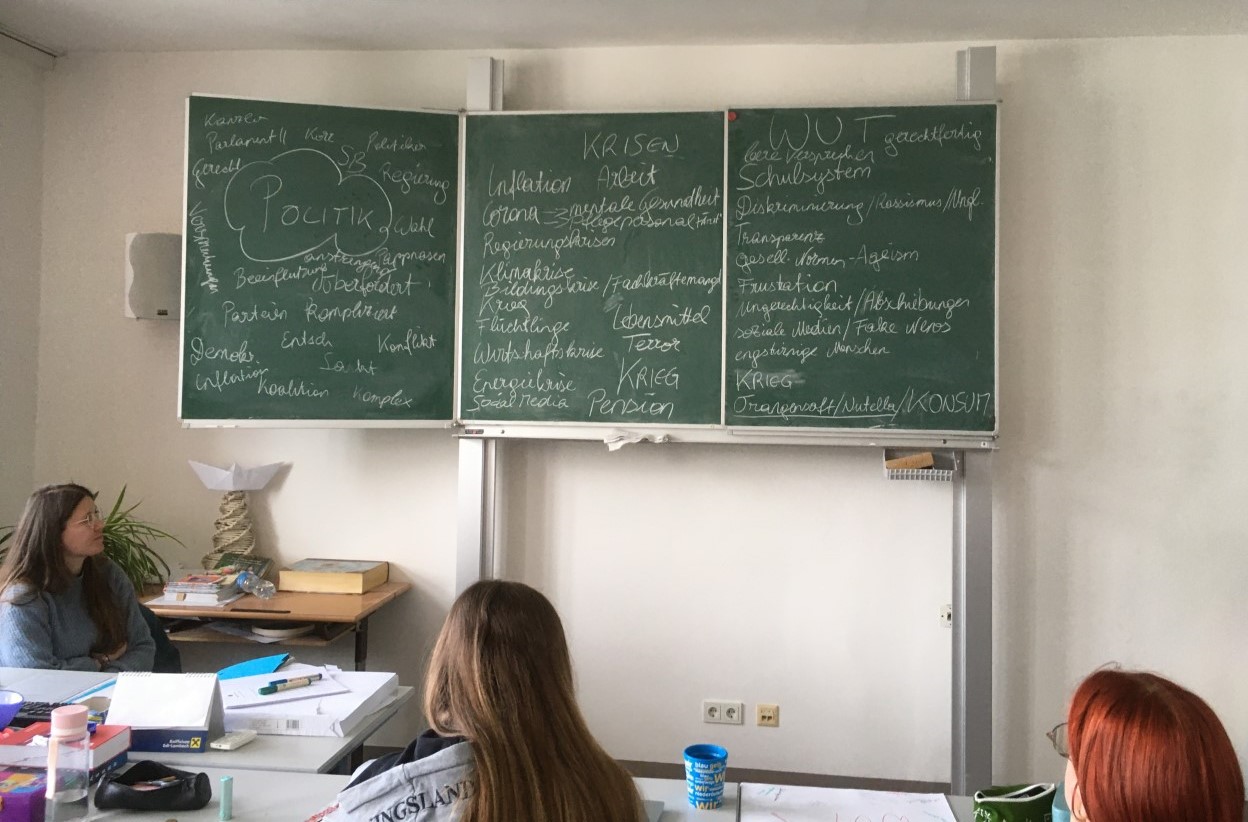 Kanzler
Parlament
Kurz
Politiker
gerecht
SB
Regierung
POLITIK
Wahl
Versprechungen
anstrengend
Beeinflutzung
überfordert
Partein
kompliziert
Entsch
Konflikt
Demokr.
Inflation
Koalition
Komplex
KRISEN
Inflation Arbeit
Corona mentale Gesundheit
Regierungskrisen
Klimakrise
Bildungskrise / Fachkräftemangel
Krieg
Flüchtlinge
Lebensmittel
Wirtschaftskrise
Terror
Energiekrise
KRIEG
Social Media
Pension
WUT gerechtfertig
leere Versprechen
Schulsystem
Diskriminierung / Rassismus / Ungl.
Transparenz
gesell. Normen - Ageism
Frustation
Ungerechtigkeit / Abschiebungen
soziale Medien / Fake News
engstirnige Menschen
KRIEG
Orangensaft / Nutella / KONSUM
Raiffeisen
blau gelb
wir